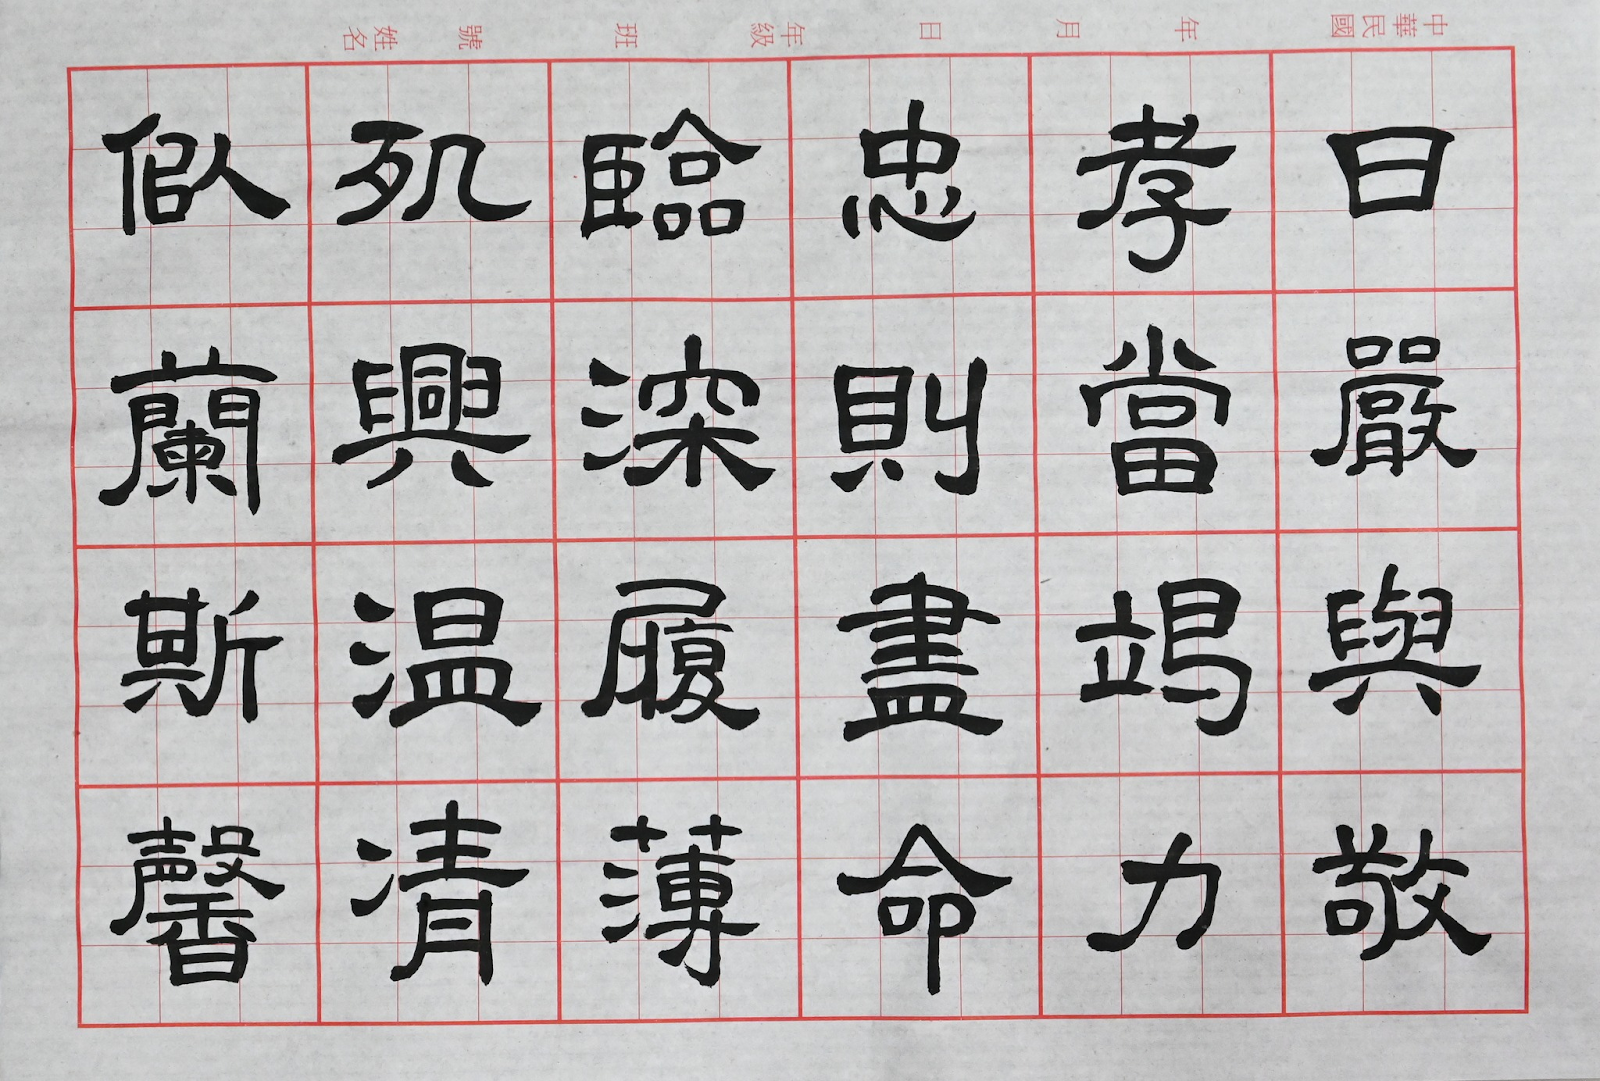 曰嚴與敬
孝當竭力
忠則盡命
臨深履薄
夙興温凊
似蘭斯馨
中華民國 年 月 日 年級 班 號 姓名